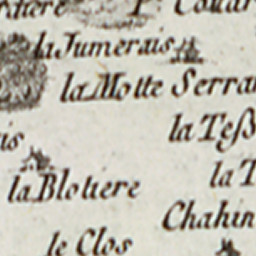 la Jumerais
la Motte Serra
la Teß
la Blotiere
la T
Chahin
le Clos